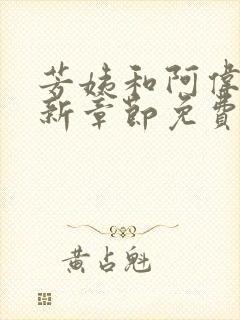 芳姨和阿偉
新章節免費
黄占魁